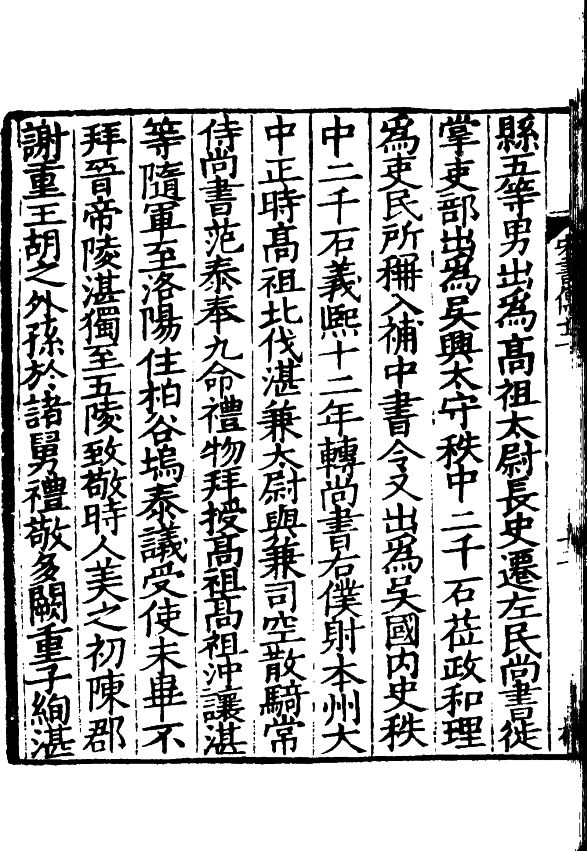 縣五等男出爲高祖太尉長史遷左民尚書徙
掌吏部出爲吳興太守秩中二千石莅政和理
爲吏民所稱入補中書令又出爲吳國内史秩
中二千石義熙十二年轉尚書右僕射本州大
中正時高祖北伐湛兼太尉與兼司空散騎常
侍尚書范泰奉九命禮物拜授高祖高祖沖讓湛
等隨軍至洛陽住柏谷塢泰議受使未畢不
拜晉帝陵湛獨至五陵致敬時人美之初陳郡
謝重王胡之外孫於諸舅禮敬多闕重子絢湛